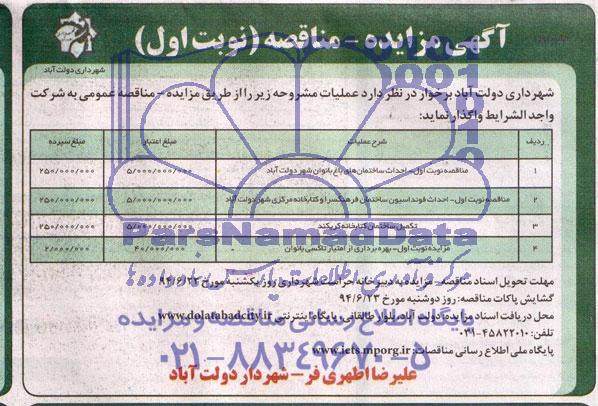 آگهی مزایده - مناقصه (نوبت اول)
شهرداری دولت آباد
شهرداری دولت آباد برخوار در نظر دارد عملیات مشروحه زیر را از طریق مزایده - مناقصه عمومی به شرکت
واجد الشرایط واگذار نماید:
ردیف شرح عملیات مبلغ اعتبار مبلغ سپرده
۱ مناقصه نوبت اول - احداث ساختمان های باغ بانوان شهر دولت آباد ۵/۰۰۰/۰۰۰/۰۰۰ ۲۵۰/۰۰۰/۰۰۰
۲ مناقصه نوبت اول - احداث فونداسیون ساختمان فرهنگسرا و کتابخانه مرکزی شهر دولت آباد ۵/۰۰۰/۰۰۰/۰۰۰ ۲۵۰/۰۰۰/۰۰۰
۳ تکمیل ساختمان کتابخانه کربکند ۵/۰۰۰/۰۰۰/۰۰۰ ۲۵۰/۰۰۰/۰۰۰
۴ مزایده نوبت اول - بهره برداری از اعتبار تاکسی بانوان ۴۰/۰۰۰/۰۰۰ ۲/۰۰۰/۰۰۰
ParsNamadData
مهلت تحویل اسناد مناقصه - مزایده به دبیرخانه حراست شهرداری روز یکشنبه مورخ ۹۴/۶/۲۲
گشایش پاکات مناقصه: روز دوشنبه مورخ ۹۴/۶/۲۳
محل دریافت اسناد مزایده: دولت آباد، بلوار طالقانی، پایگاه اینترنتی www.dolatabadcity.ir
تلفن: ۴۵۸۲۲۰۱۰-۰۳۱
پایگاه اطلاع رسانی مناقصه و مزایده
پایگاه ملی اطلاع رسانی مناقصات: www.iets.mporg.ir
۰۲۱-۸۸۳۴۹۶۷۰-۵
علیرضا اطهری فر - شهردار دولت آباد